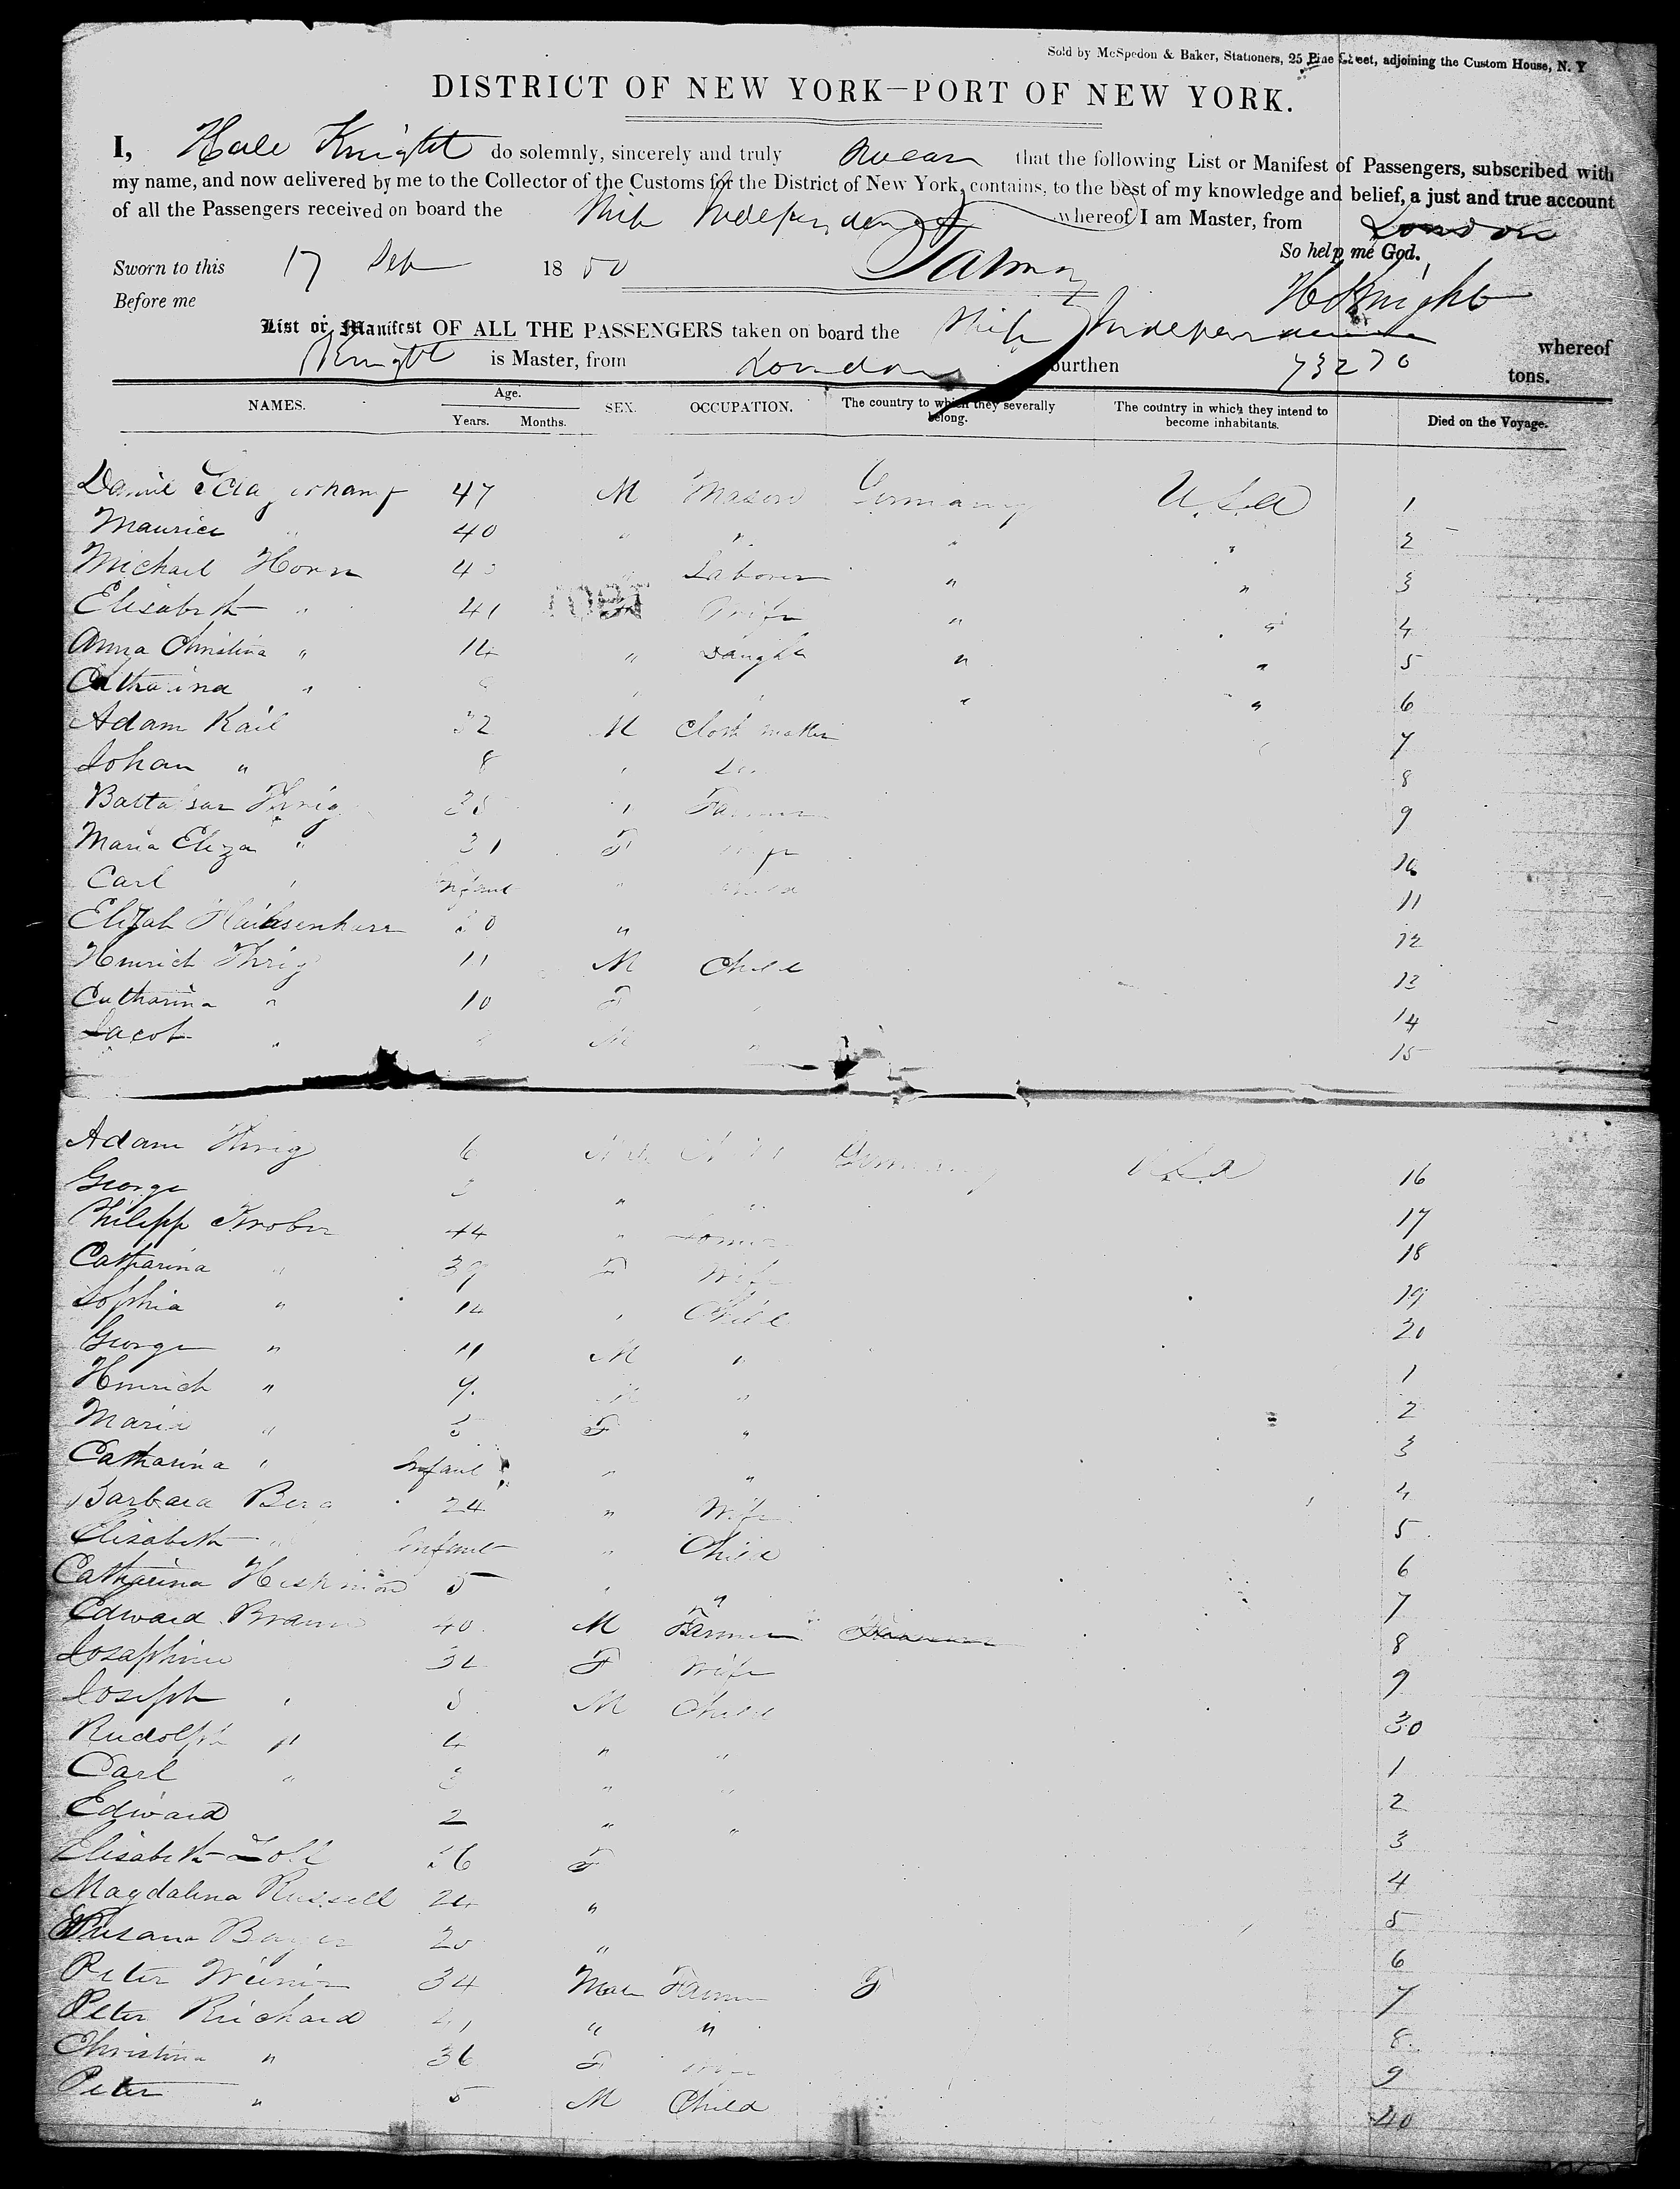 Sold by McSpedon & Baker, Stationers, 25 Pine Street, adjoining the Custom House, N. Y
DISTRICT OF NEW YORK—PORT OF NEW YORK.
I, Hale Knight do solemnly, sincerely and truly swear that the following List or Manifest of Passengers, subscribed with
my name, and now delivered by me to the Collector of the Customs for the District of New York, contains, to the best of my knowledge and belief, a just and true account
of all the Passengers received on board the Ship Independence whereof I am Master, from London
So help me God.
Sworn to this 17 Sep 1850
H Knight
Before me
List or Manifest OF ALL THE PASSENGERS taken on board the Ship Independence whereof
Knight is Master, from London burthen 73270 tons.
NAMES. Age. Years. Months. SEX. OCCUPATION. The country to which they severally belong. The country in which they intend to become inhabitants. Died on the Voyage.
Daniel 47 M Mason Germany U.S.A 1
Maurice " 40 " " " " 2
Michael Horn 4 Laborer " " 3
Elisabeth " 41 Wife " " 4
Anna Christina " 14 " Daught " " 5
Catharina " " " 6
Adam Kail 32 M Cloth maker 7
Johan " 8 " 8
Baltasar 35 " Farmer 9
Maria Eliza " 31 F Wife 10
Carl " Infant " Child 11
Elizab 20 " 12
Heinrich 11 M Child 13
Catharina " 10 F 14
Jacob " M " 15
Adam 6 Germany U.S.A 16
George " " 17
Philipp 44 " 18
Catharina " 39 F Wife 19
Sophia " 14 " Child 20
George " 11 M " 1
Heinrich " 9 " 2
Maria " 5 F " 3
Catharina " Infant " " 4
Barbara Berg 24 " Wife 5
Elisabeth " Infant " Child 6
Catharina 5 " " 7
Edward Braun 40 M Farmer 8
Josaphine 32 F Wife 9
Joseph " 5 M Child 30
Rudolph " 4 " " 1
Carl " 3 " " 2
Edward 2 " " 3
Elisabeth 26 F 4
Magdalina Russell 24 " 5
Susana Bayer 20 " 6
Peter 34 Male Farmer F 7
Peter Reichard 41 " " 8
Christina " 36 F Wife 9
Peter " 5 M Child 40